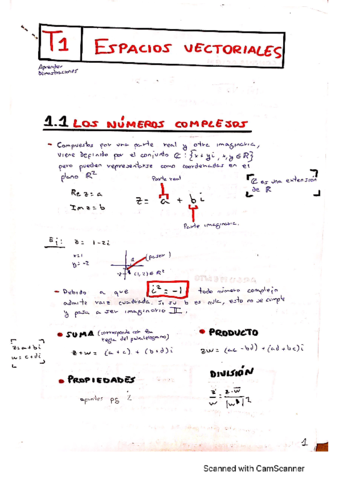 T1 ESPACIOS VECTORIALES
Aprender
Demostraciones
1.1 LOS NÚMEROS COMPLEJOS
- Compuestos por una parte real y otra imaginaria,
viene definido por el conjunto ℂ: {x+yi, x,y ∈ ℝ}
pero pueden representarse como coordenadas en el
plano ℝ²
ℂ es una extensión
de ℝ
Parte real
Re z = a
Im z = b
z = a + b i
Parte imaginaria
Ej: z = 1-2i
x=1
y=-2
- Debido a que i² = -1 todo número complejo
admite raíz cuadrada. Si su b es nula, esto no se cumple
y pasa a ser imaginario II.
z=a+bi
w=c+di
• SUMA (corresponde con la
regla del paralelogramo)
z+w = (a+c) + (b+d)i
• PRODUCTO
zw = (ac-bd) + (ad+bc)i
• PROPIEDADES
apuntes pg 2
DIVISIÓN
z/w = z·w̄/|w|²
1
Scanned with CamScanner